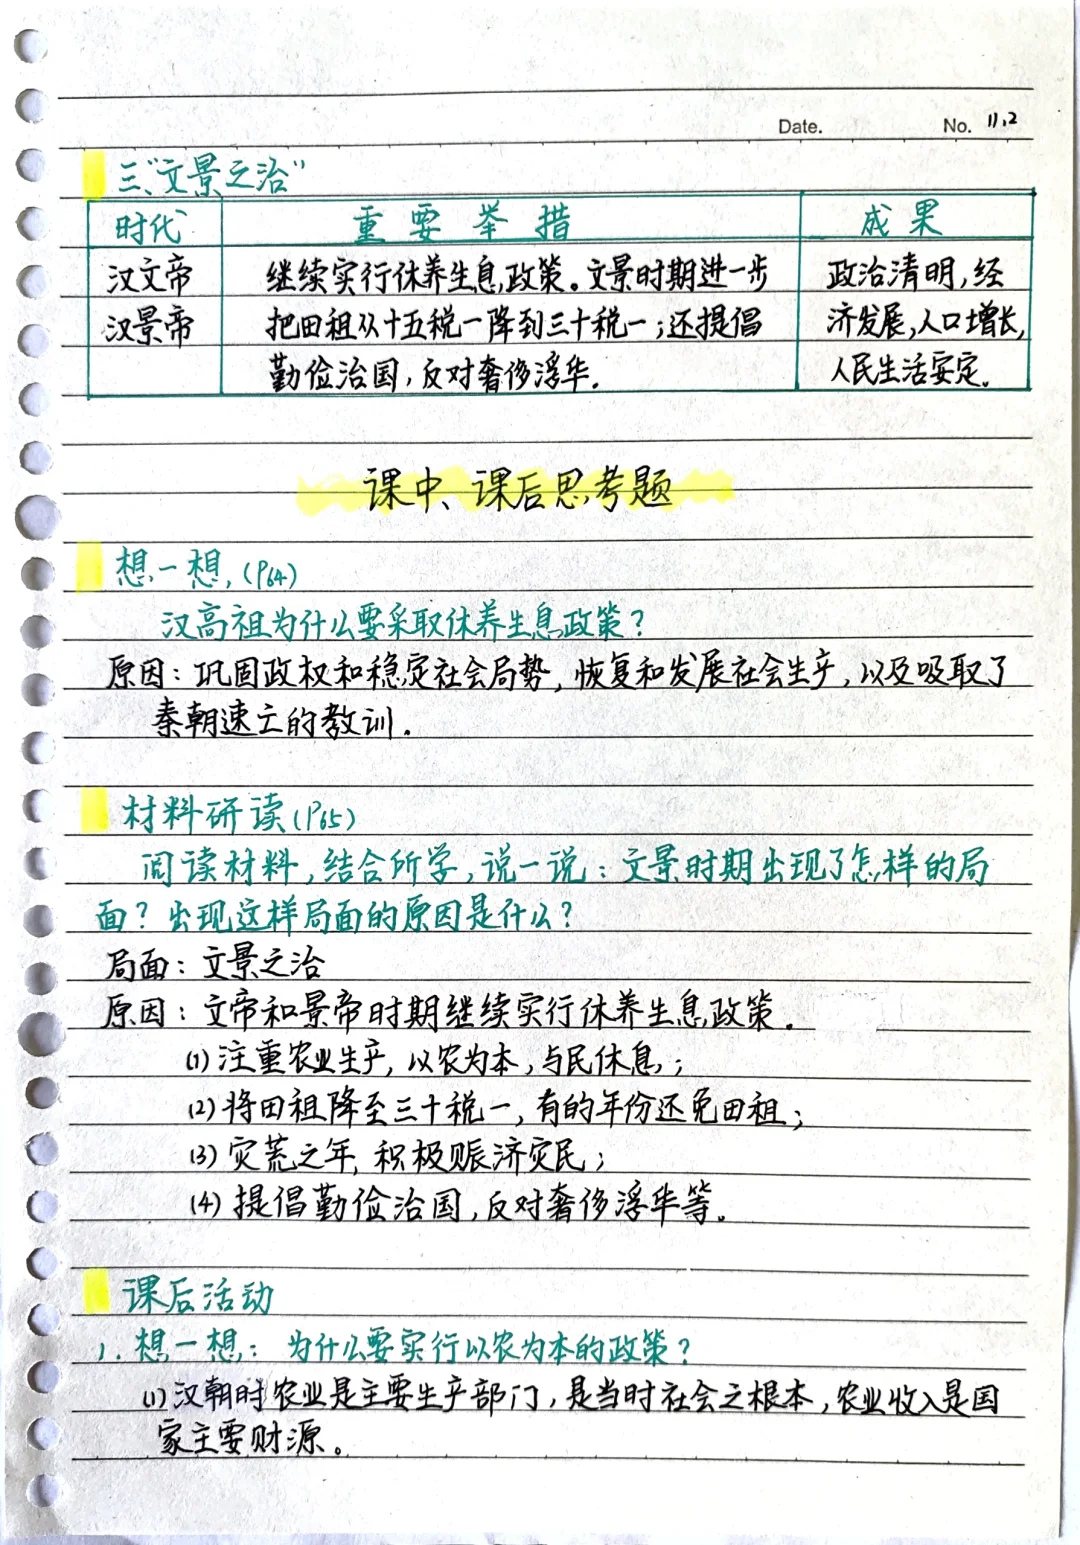 Date.
No. 11.2
三、“文景之治”
时代 重要举措 成果
汉文帝 继续实行休养生息政策。文景时期进一步 政治清明,经
汉景帝 把田租从十五税一降到三十税一;还提倡 济发展,人口增长,
勤俭治国,反对奢侈浮华. 人民生活安定。
课中、课后思考题
想一想,(P64)
汉高祖为什么要采取休养生息政策?
原因:巩固政权和稳定社会局势,恢复和发展社会生产,以及吸取了
秦朝速亡的教训.
材料研读(P65)
阅读材料,结合所学,说一说:文景时期出现了怎样的局
面?出现这样局面的原因是什么?
局面:文景之治
原因:文帝和景帝时期继续实行休养生息政策.
(1)注重农业生产,以农为本,与民休息;
(2)将田租降至三十税一,有的年份还免田租;
(3)灾荒之年,积极赈济灾民;
(4)提倡勤俭治国,反对奢侈浮华等。
课后活动
1.想一想:为什么要实行以农为本的政策?
(1)汉朝时农业是主要生产部门,是当时社会之根本,农业收入是国
家主要财源。